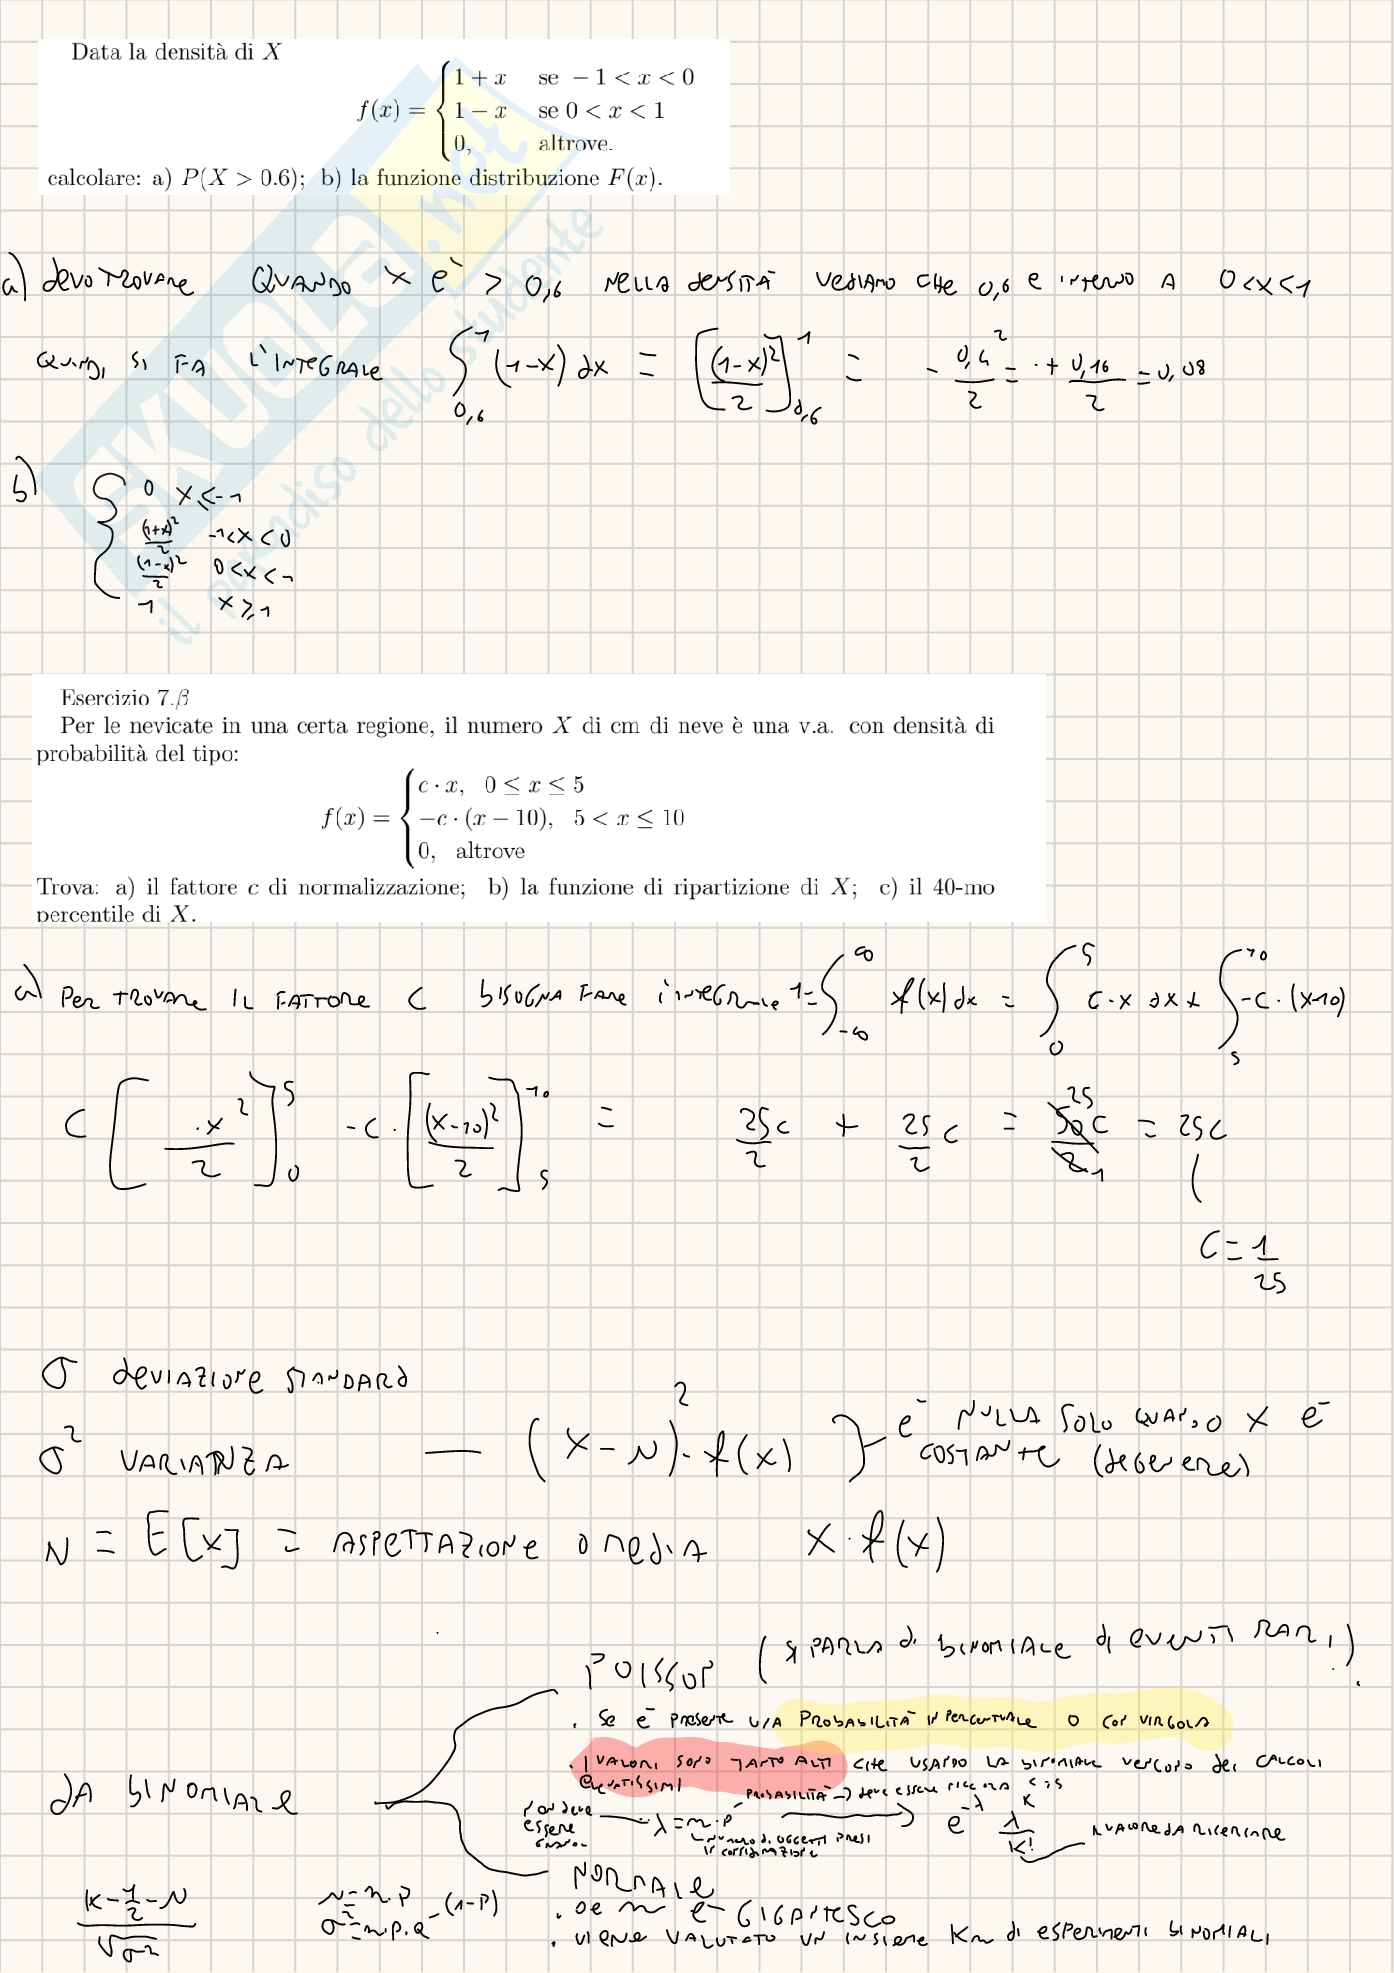 Data la densità di X
f(x) = { 1 + x se − 1 < x < 0
1 − x se 0 < x < 1
0, altrove.
calcolare: a) P(X > 0.6); b) la funzione distribuzione F(x).
a) devo trovare quando x è > 0,6 nella densità vediamo che 0,6 è interno a 0<x<1
quindi si fa l'integrale ∫_{0,6}^{1} (1-x) dx = [(1-x)²/2]_{0,6}^{1} = - 0,4²/2 = + 0,16/2 = 0,08
b) { 0 x ≤ -1
(1+x)²/2 -1<x<0
(1-x)²/2 0<x<1
1 x ≥ 1
SKUOLA.net
il paradiso dello studente
Esercizio 7.β
Per le nevicate in una certa regione, il numero X di cm di neve è una v.a. con densità di
probabilità del tipo:
f(x) = { c · x, 0 ≤ x ≤ 5
−c · (x − 10), 5 < x ≤ 10
0, altrove
Trova: a) il fattore c di normalizzazione; b) la funzione di ripartizione di X; c) il 40-mo
percentile di X.
a) Per trovare il fattore c bisogna fare integrale 1=∫_{-∞}^{∞} f(x) dx = ∫_{0}^{5} c·x dx + ∫_{5}^{10} -c·(x-10)
c [·x²/2]_{0}^{5} -c·[(x-10)²/2]_{5}^{10} = 25c/2 + 25/2 c = 50c/2 25 1 = 25c
c = 1/25
σ deviazione standard
σ² varianza — (x-μ)²·f(x) } è nulla solo quando x è
costante (degenere)
μ = E[x] = aspettazione o media x·f(x)
Poisson (si parla di binomiale di eventi rari)
· se è presente una probabilità in percentuale o con virgola
· i valori sono tanto alti che usando la binomiale vengono dei calcoli
da binomiale
probabilità → deve essere piccola
non deve essere λ = n·p → e^{-λ} λ^k/k!
numero di oggetti presi
k valore da ricercare
Normale
· se n è gigantesco
· viene valutato un insieme Kn di esperimenti binomiali
k-1/2-μ / √σ²
μ=n·p
σ²=n·p·q -(1-p)